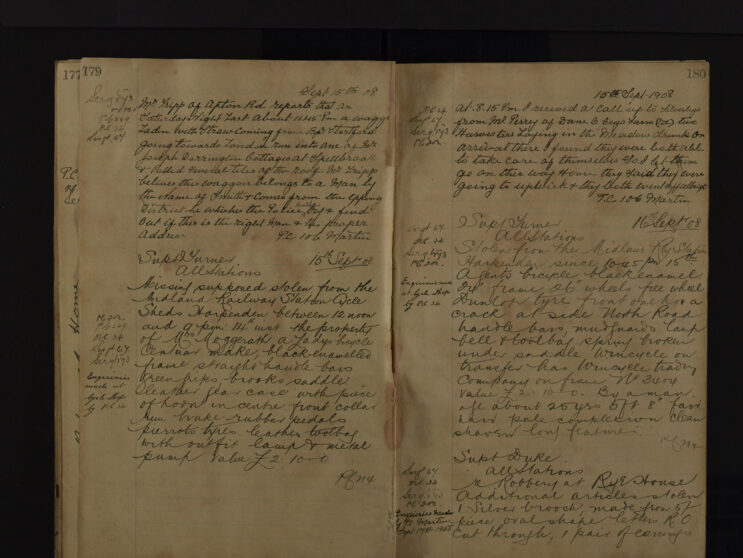 177
179
Sept 15th 08
Mr Tripp of Apton Rd reports that on
Saturday Night Last about 12.45 Am a waggon
Laden with Straw Coming from Bp Stortford
going towards London run into one of Mr
Joseph Dorrington Cottages at Spellbrook
& Pulled several tiles of the roof Mr Tripp
belives this waggon belongs to a Man by
the Name of Smith & Comes from the Epping
District he wishes the Police to try & find
Out if this is the right Man & his proper
Address P.C. 106 Martin
Supt Turner 15th Sept 08
All Stations
Missing supposed stolen from the
Midland Railway Station Cycle
Sheds Harpenden between 12 noon
and 9 pm 14th inst the property
of Mrs Moggerath a Ladys bicycle
Centaur make, black enamelled
frame straight handle bars
Green grips brooks saddle
Leather gear case with piece
of horn in centre front collar
rim brake rubber pedals
pierrots tyres leather toolbag
with outfit lamp & metal
pump value £2. 10-0
Sergt 93
Pc 24
Sergt 67
Pc 202
Enquiries
made at
Cycle Shop
by Pc 24
180
15th Sept 1908
At 8.15 Pm I received a Call up to
from Mr Perry of Dane O Coys Farm two
Harvesters Laying in the Meadow drunk On
arrival there I found they were both able
to take care of themselves So I let them
go on their way Home they Said they were
going to Uplwick & they both went
P.C. 106 Martin
Supt Turner 16th Sept 08
All Stations
Stolen from the Midland Ry Station
Harpenden since 10.45 pm 15th
A Gents bicycle black enamel
24" frame 26" wheels free wheel
Dunlop tyre front one has a
crack at side North Road
handle bars, mudguards lamp
bell & toolbag spring broken
under saddle Wincycle on
transfer has Wincycle trading
Company on frame No 3404
value £2. 10-0. By a man
age about 25 yrs 5ft 8" fair
hair pale complexion clean
shaven long features.
Supt Duke
All Stations
re Robbery at Rye House
Additional articles stolen
1 Silver brooch, made from 5/-
piece, oval shape letters R.O
cut through, 1 pair of earrings
Pc 24
Sergt 67
Sergt 93
Pc 202
Sergt 67
Pc 24
Sergt 93
Pc 202
Enquiries
at Cycle Shop
by Pc 24
Sergt 67
Pc 24
Sergt 93
Pc 202
Enquiries made
by Pc Martin
Sept 17th 1908